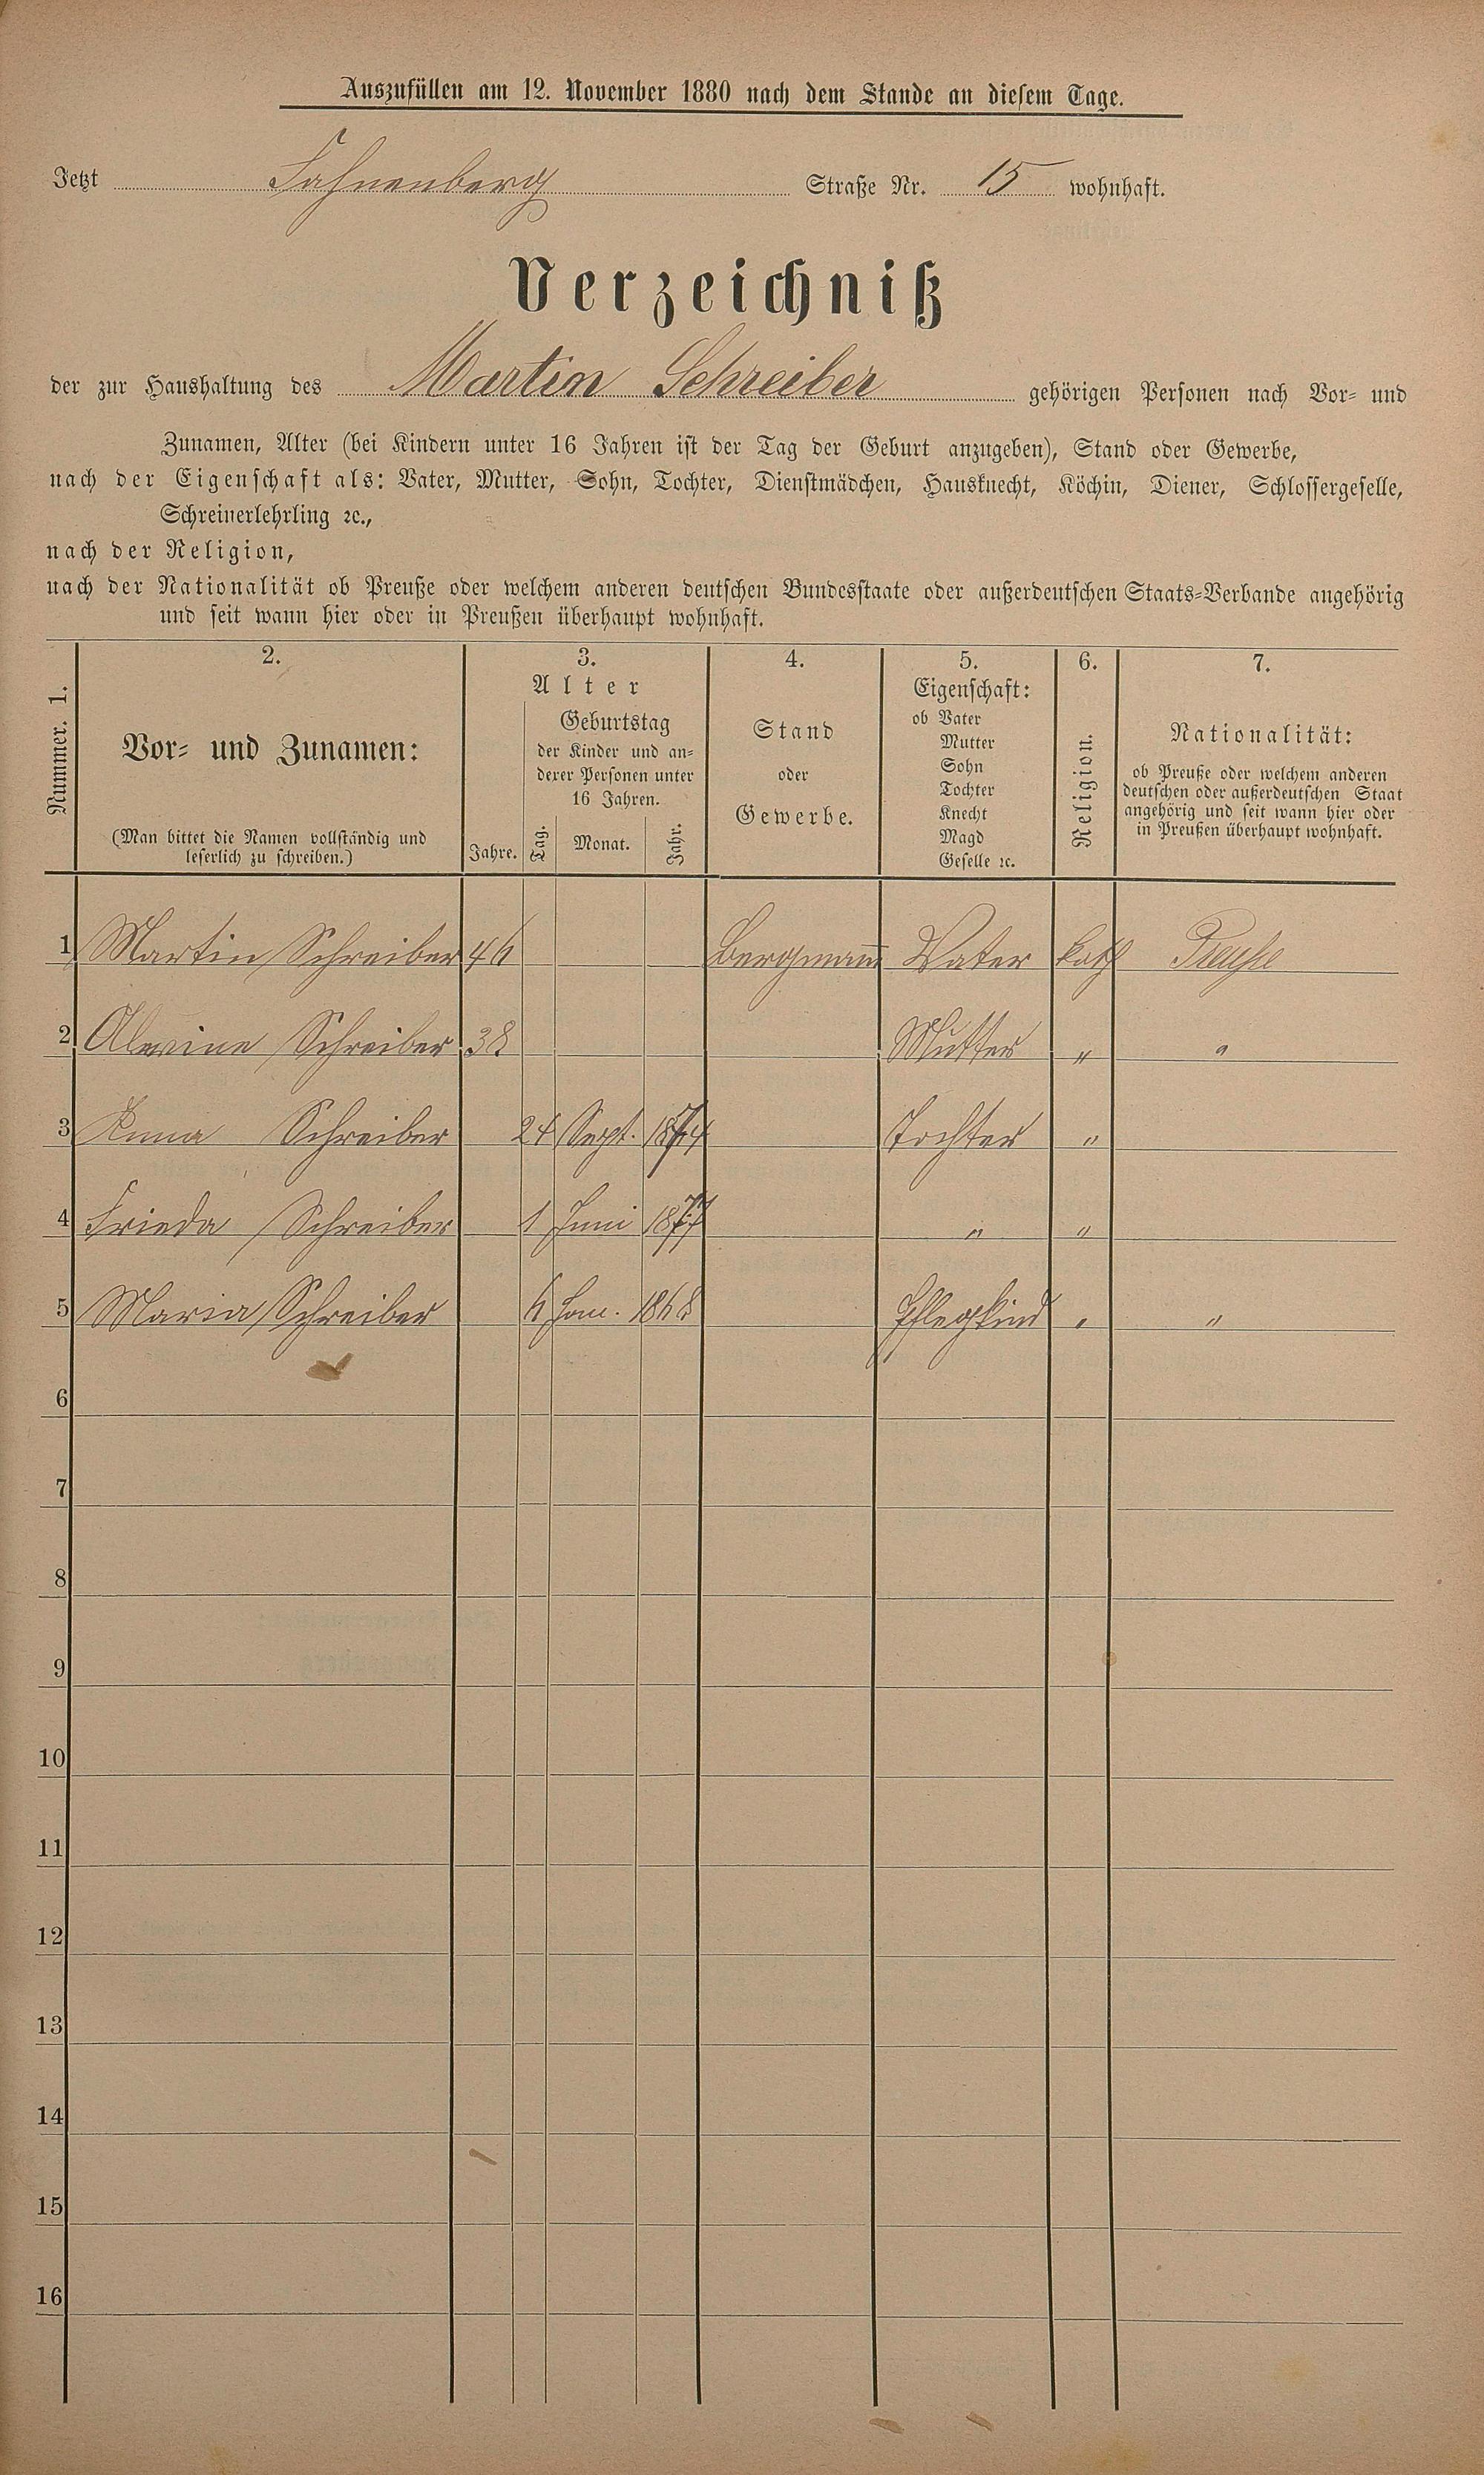 Auszufüllen am 12. November 1880 nach dem Stande an diesem Tage.
Jetzt Fahnenberg Straße Nr. 15 wohnhaft.
Verzeichniß
der zur Haushaltung des Martin Schreiber gehörigen Personen nach Vor- und
Zunamen, Alter (bei Kindern unter 16 Jahren ist der Tag der Geburt anzugeben), Stand oder Gewerbe,
nach der Eigenschaft als: Vater, Mutter, Sohn, Tochter, Dienstmädchen, Hausknecht, Köchin, Diener, Schlossergeselle,
Schreinerlehrling ꝛc.,
nach der Religion,
nach der Nationalität ob Preuße oder welchem anderen deutschen Bundesstaate oder außerdeutschen Staats-Verbande angehörig
und seit wann hier oder in Preußen überhaupt wohnhaft.
Nummer. 1.
2.
Vor- und Zunamen:
(Man bittet die Namen vollständig und
leserlich zu schreiben.)
3.
Alter
Jahre.
Geburtstag
der Kinder und an-
derer Personen unter
16 Jahren.
Tag. Monat. Jahr.
4.
Stand
oder
Gewerbe.
5.
Eigenschaft:
ob Vater
Mutter
Sohn
Tochter
Knecht
Magd
Geselle ꝛc.
6.
Religion.
7.
Nationalität:
ob Preuße oder welchem anderen
deutschen oder außerdeutschen Staat
angehörig und seit wann hier oder
in Preußen überhaupt wohnhaft.
1 Martin Schreiber 46 Bergmann Vater kath Preuße
2 Alwine Schreiber 38 Mutter " "
3 Anna Schreiber 24 Sept. 1874 Tochter "
4 Frieda Schreiber 1 Juni 1877 " "
5 Maria Schreiber 6 Jan. 1868 Pflegkind " "
6
7
8
9
10
11
12
13
14
15
16